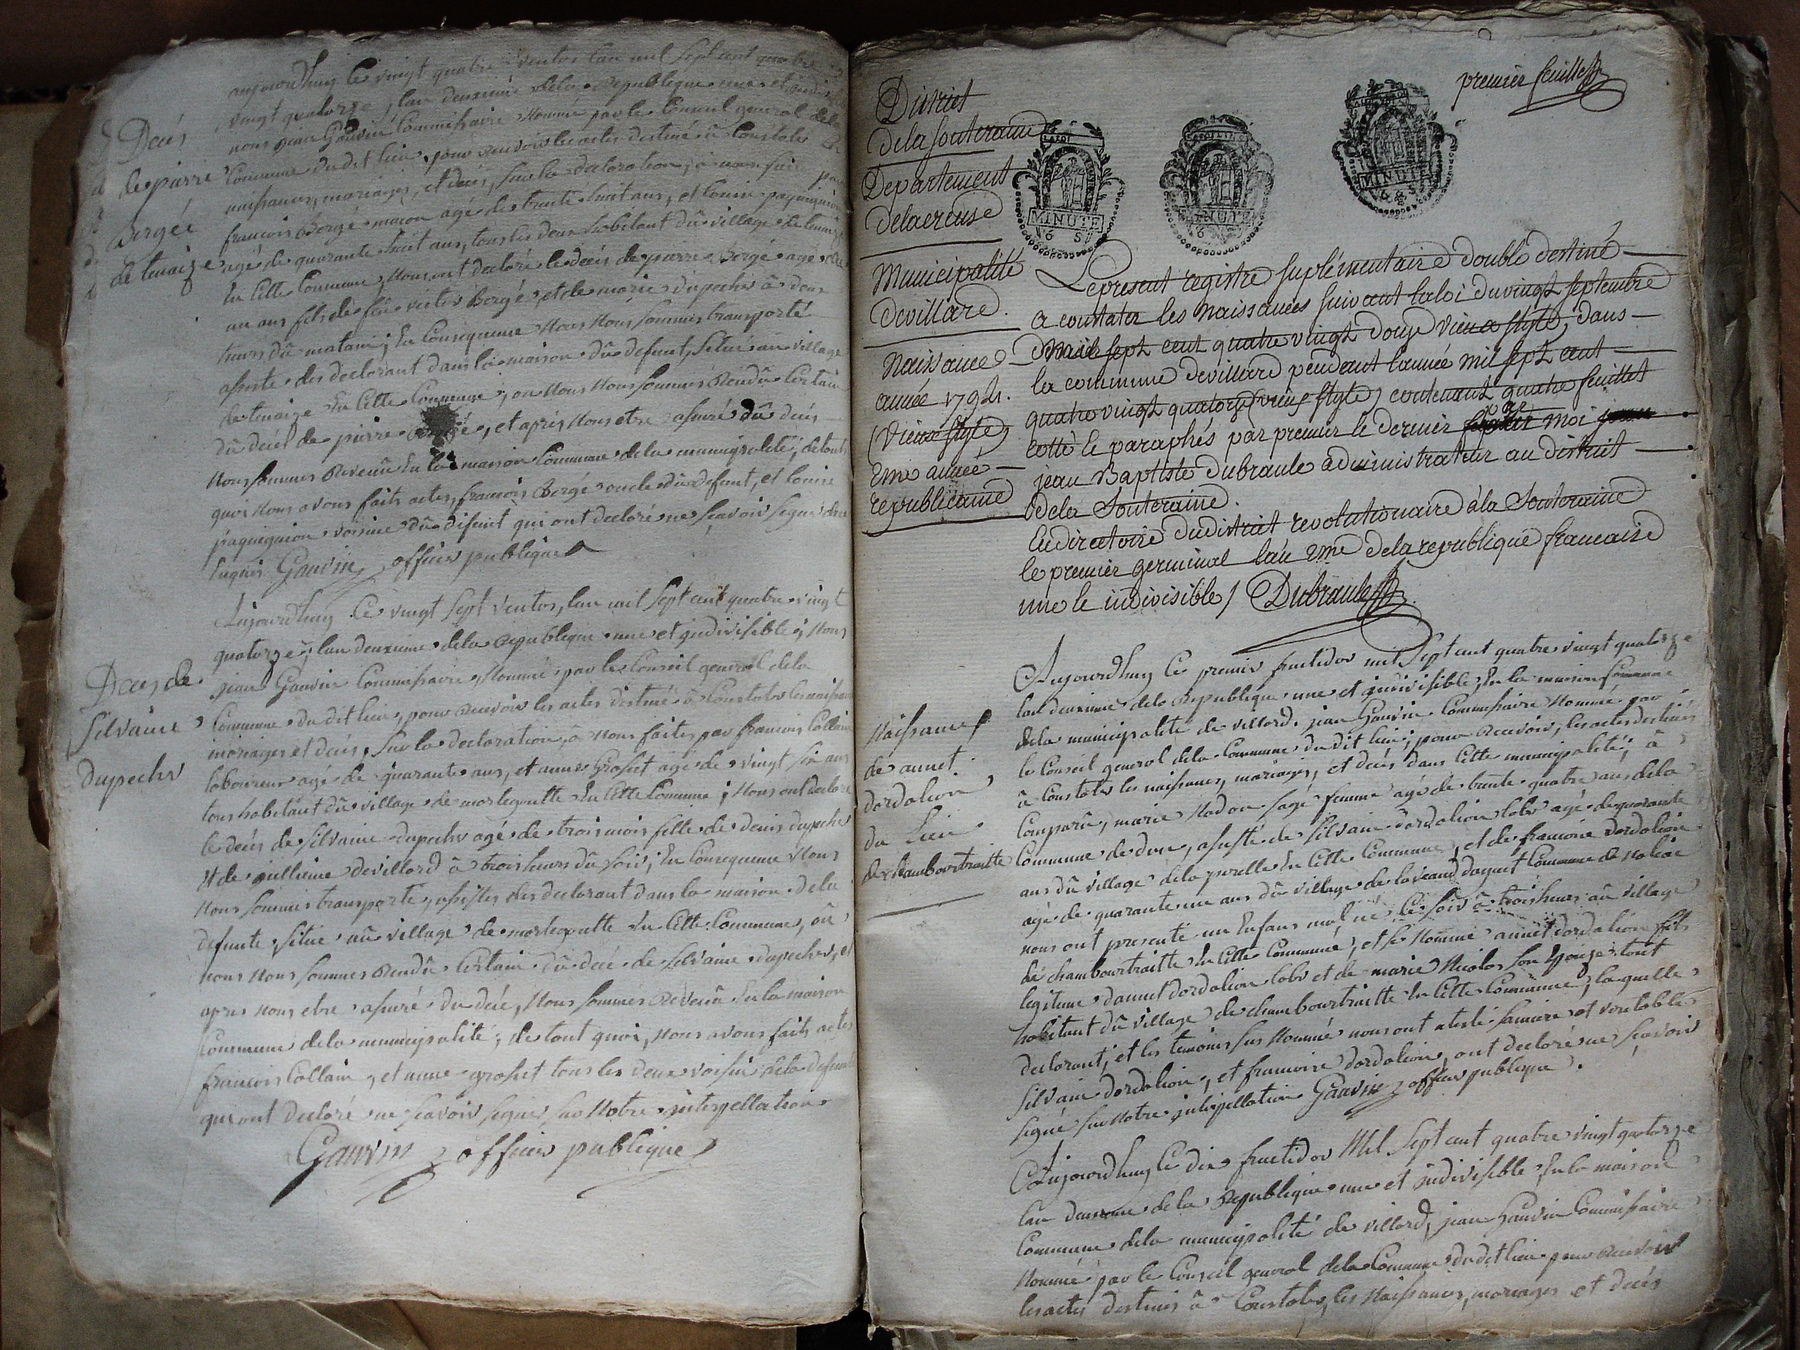 aujourdhuy le vingt quatre ventos lan mil sept cent quatre
vingt quatorze, lan deuxieme dela Republique une et indi
nous jean Gauvin Commissaire Nommé par le Conseil general dela
Commune du dit lieu, pour recevoir les actes destiné a Constater les
naissances, mariages, et deces, sur la declaration, a nous fait par
francois Bergé macon agé de trente huit ans, et
agé de quarante huit ans, tous les deux habitant du village de tenaize
En Cette Commune, Nous ont declaré le deces de pierre Bergé agé
un ans fils de feu Bergé et de marie dupechs a deux
heurs du matain; En Consequence Nous Nous sommes transporté
assiste des declorant dans la maison du defunt, situé au village
de tenaize En Cette Commune, ou Nous Nous sommes Rendu Certain
du deces de pierre, et apres Nous etre assuré du deces
Nous sommes Revenu En la maison Commune dela municipalité; de tout
quoi Nous avons faits actes, francois Bergé oncle du defunt, et
voisine du defunt qui ont declaré ne scavoir signer de ce
Enquis Gauvin officier publique
Deces
de pierre
Bergéé
de tenaize
Aujourdhuy Ce vingt sept ventos, lan mil sept cent quatre vingt
quatorze, lan deuxieme dela Republique une et indivisible, Nous
jean Gauvin Commissaire Nommé par le Conseil general dela
Commune du dit lieu, pour recevoir les actes destiné a Constater les naissance
mariages et deces, sur la declaration, a nous faites par francois Collain
laboureur agé de quarante ans, et anne Grosset agé de vingt six ans
tous habitant du village de mortegoutte En Cette Commune; Nous ont declaré
le deces de silvaine dupechs agé de trois mois fille de denis dupechs
et de devillard a trois heurs du soir; En Consequence Nous
Nous sommes transporté, assistes des declorant dans la maison dela
defunte, situé au village de mortegoutte En Cette Commune, ou
nous Nous sommes Rendu Certain du deces de silvaine dupechs, et
apres Nous etre assuré du deces, Nous sommes Revenu En la maison
Commune dela municipalité; de tout quoi, Nous avons faits actes
francois Collain, et anne grosset tous les deux voisin dela defunte
qui ont declaré ne scavoir signer sur Notre interpellation
Gauvin officier publique
Deces de
Silvaine
dupechs
premier feuillet
District
dela Souteraine
Departement
dela creuse
MINUTE
65
MINUTE
6
MINUTE
6 S
Municipalité
de villard.
Naissance
année 1794.
(vieux style)
2me année
republicaine
Le present registre suplémentaire double destiné
a constater les naissances suivant la loi du vingt septembre
mil sept cent quatre vingt douze vieux style, dans
la commune de villard pendant l'année mil sept cent
quatre vingt quatorze (vieux style) contenant quatre feuillet
cotté le paraphés par premier le dernier par moi
jean Baptiste Dubraule administrateur au district
de la Souteraine.
En directoire du district revolutionaire a la Souteraine
le premier germinal l'an 2me de la republique francaise
une le indivisible / Dubraule
Naissance
de annet
dordalion
du Lieu
de chambourtraitte
Aujourdhuy Ce premier fructidor mil Sept cent quatre vingt quatorze
lan deuxieme dela Republique une et indivisible, En la maison Commune
dela municipalite de villard, jean Gauvin Commissaire Nommé par
le Conseil general dela Commune du dit lieu; pour Recevoir, les actes destinés
à Constater les naissances, mariages, et deces dans Cette municipalité; à
Comparu, marie Nadau sage femme agé de trente quatre ans dela
Commune de dun, assisté de silvain dordalion labr agé de quarante
ans du village dela En Cette Commune, et de francoise dordalion
agé de quarante une ans du village de la Commune de Naliac
nous ont presenté un Enfans mal né Ce soir a trois heurs au village
de chambourtraitte En Cette Commune, et se Nomme annet dordalion fils
legitime d'annet dordalion labr et de marie Nicolas son Epouze tout
habitant du village de chambourtraitte En Cette Commune, la quelle
declorant; et les temoins sus Nommé nous ont atesté sincere et veritable
Silvain dordalion, et francoise dordalion, ont declaré ne scavoir
signé sur Notre interpellation Gauvin officier publique.
Aujourdhuy le dix fructidor Mil Sept cent quatre vingt quatorze
lan deuxieme dela Republique une et indivisible En la maison
Commune dela municipalité de villard, jean Gauvin Commissaire
Nommé par le Conseil general dela Commune du dit lieu pour recevoir
les actes destinés à Constater, les Naissances, mariages et deces